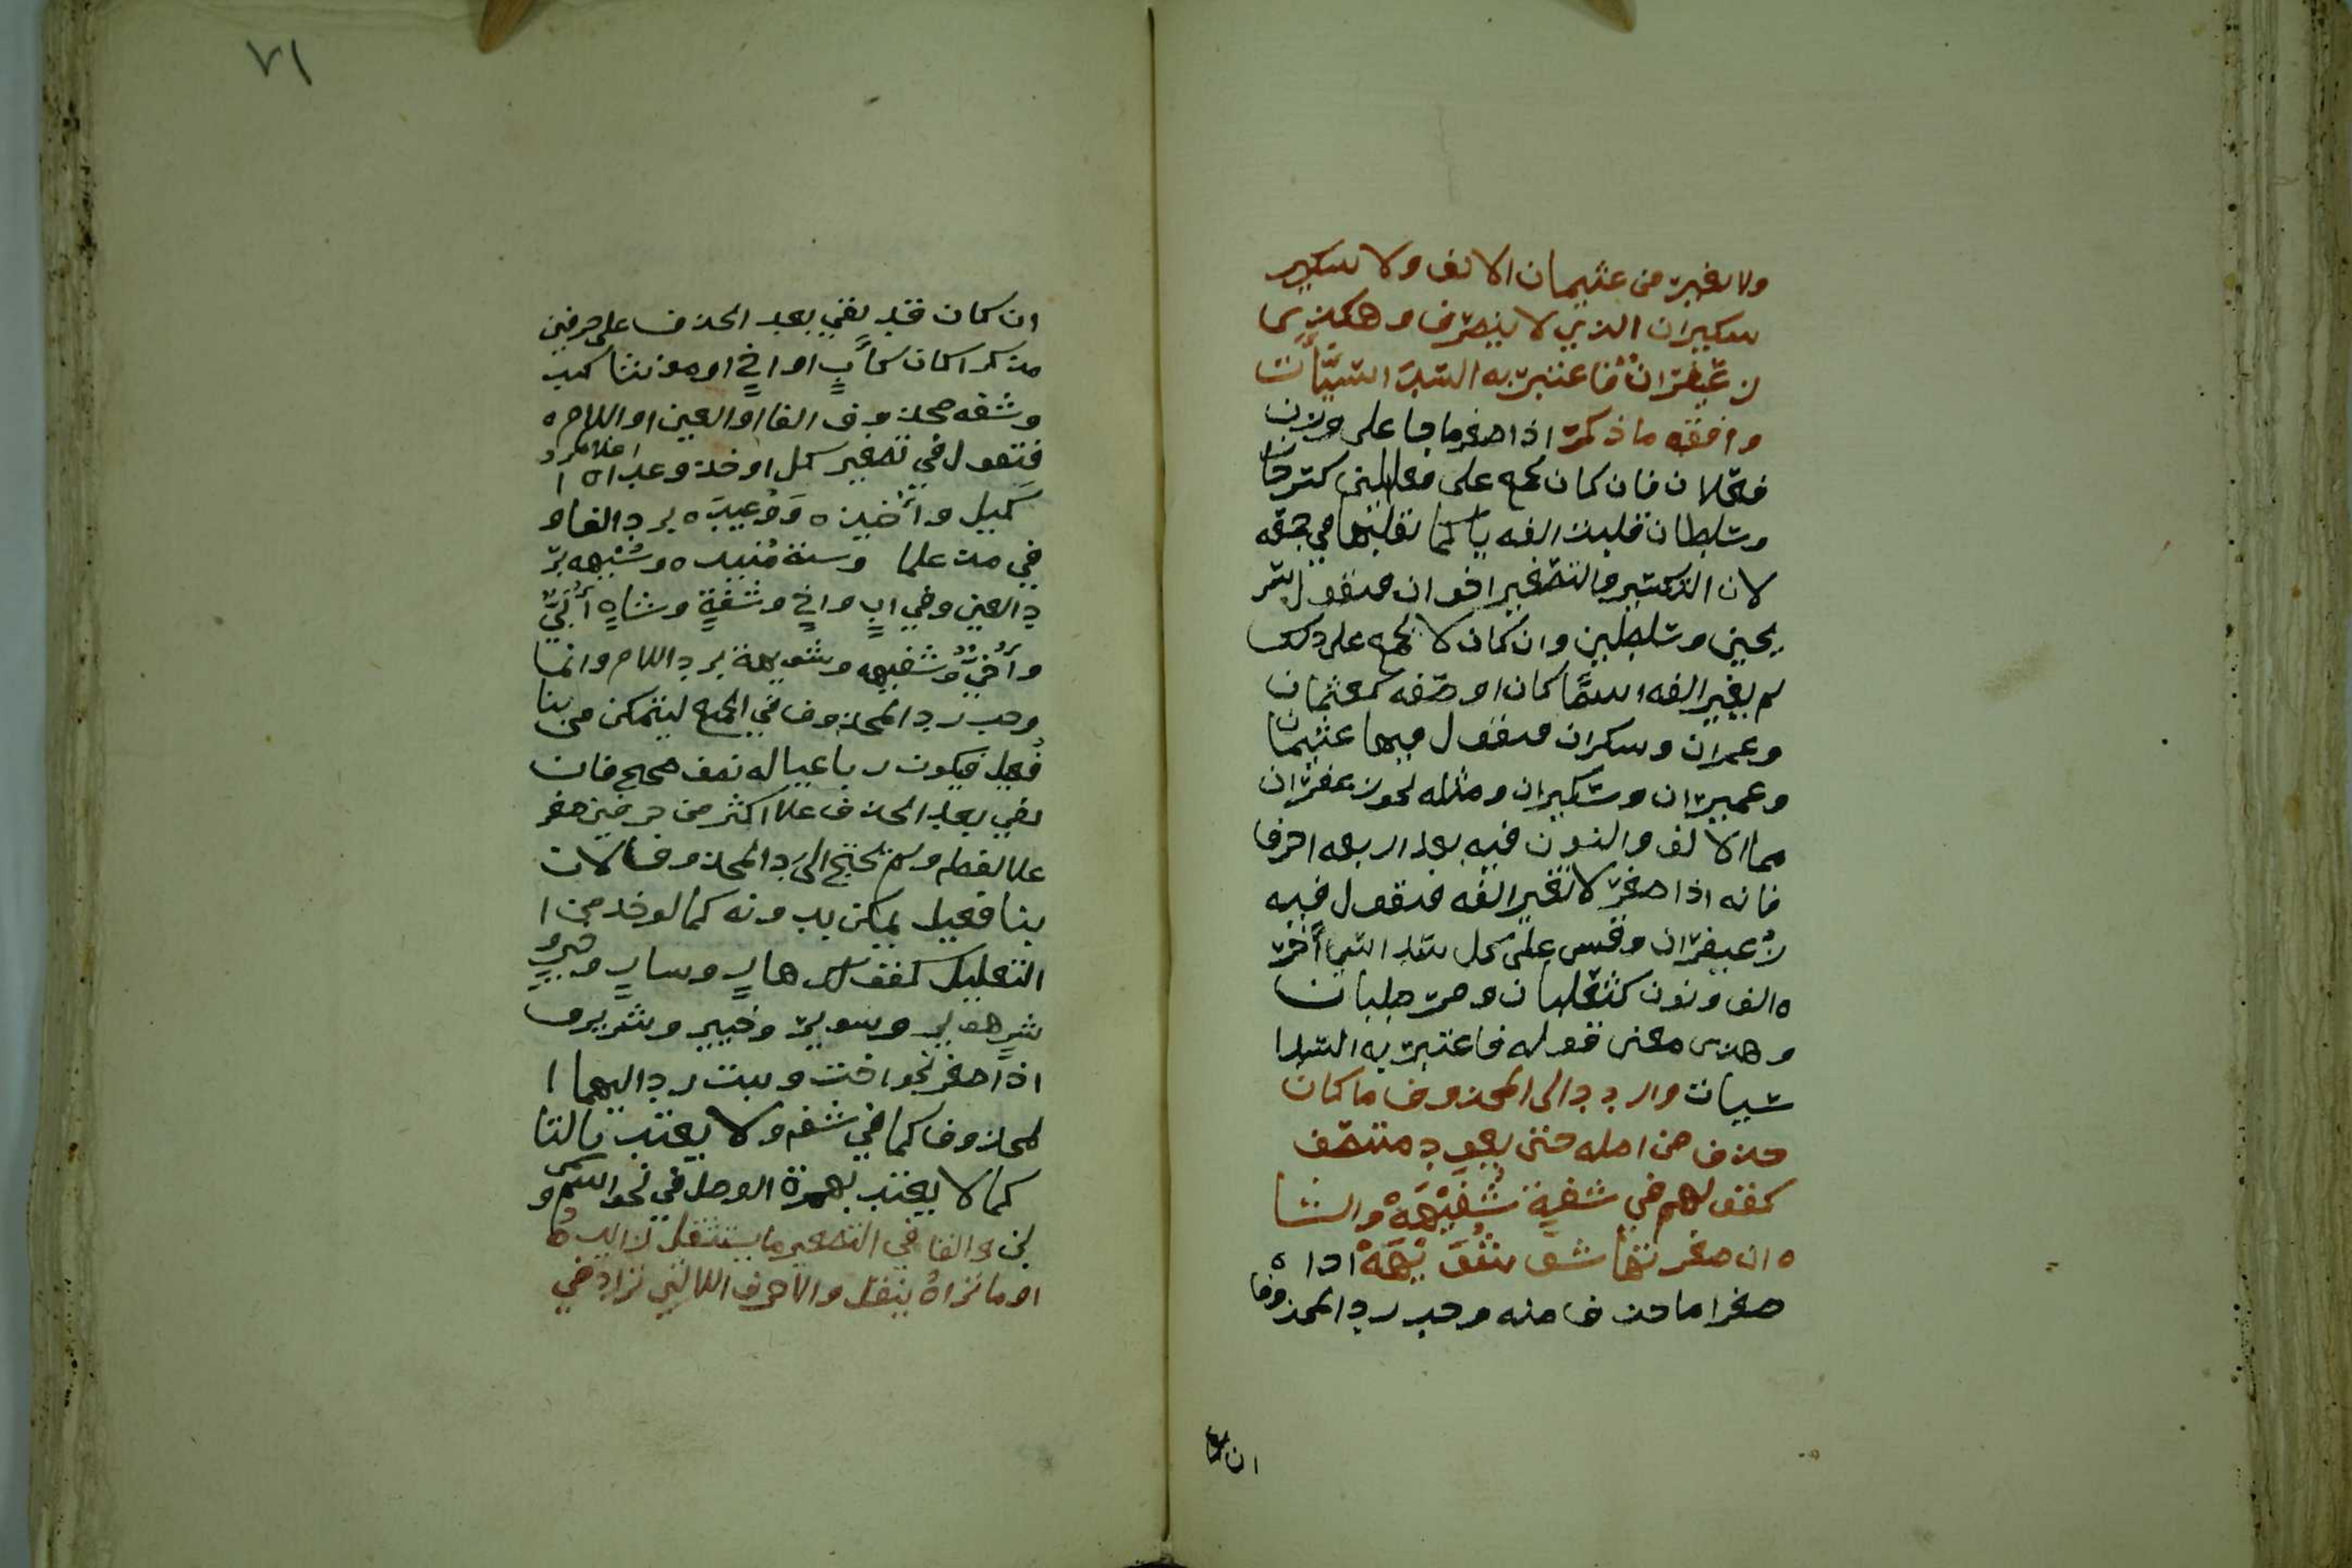 ولا تغير من عثيمان الالف ولا سكير
سكيران الذي لا ينصرف وهكذى
زعيفران فاعتبر به السد اسيات
وافقه ما ذكرت اذا صغر ما جا على وزن
فعلان فان كان يجمع على فعالين كسرحان
وسلطان قلبت الفه يا كما تقلبها في جمعه
لان التكسير والتصغير اخوان فتقول سر
يحين وسليطين وان كان لا يجمع على ذلك
لم يغير الفه اسما كان او صفه كعثمان
وعمران وسكران فتقول فيها عثيمان
وعميران وسكيران ومثله نحو زعفران
مما الالف والنون فيه بعد اربعه احرف
فانه اذا صغر لا تغير الفه فتقول فيه
زعيفران وقس على كل سدا سي اخر
ه الف ونون كثعلبان وصر حلبان
وهذى معنى قوله فاعتبر به السدا
سيات واردد الى المحذوف ما كان
حذف من اصله حتى يعود منتصف
كقولهم في شفة شفيهة والشا
ه ان صغرتها شو شو يهة اذا ه
صغر اما حذف منه وجب رد المحذوف
ان كان
٧١
ان كان قد بقي بعد الحذف على حرفين
مذكرا كان كاب او اخ او مونثا كيد
وشفه محذوف الفا او العين او اللام ه
فتقول في تصغير كل او خذ وعده ا
اعلام رد
كيل و اخيذ ه ووعيده برد الفا و
في مذ علما وسنة منيذ ه وستيهه بر
د العين وفي اب واخ وشفة وشاه ابي
واخي وشفيهه وشويهة برد اللام وانما
وجب رد المحذوف في الجمع ليتمكن من بنا
فعيل فيكون رباعيا له نصف صحيح فان
بقي بعد الحذف علا اكثر من حرفين صغر
علا لفظه ولم يحتج الى رد المحذوف لان
بنا فعيل يمكن بدونه كما لو خذ من ا
التعليل كقولك هار وسار وخير و
شر هوير وسوير وخيير وشرير ف
اذا صغر نحو اخت وبنت رد اليهما ا
لمحذوف كما في شفه ولا يعتد بالتا
كما لا يعتد بهمزة الوصل في نحو اسم و
بن والق في التصغير ما يستثقل زايده
او ما تراه يثقل والاحرف اللاتي تزاد في